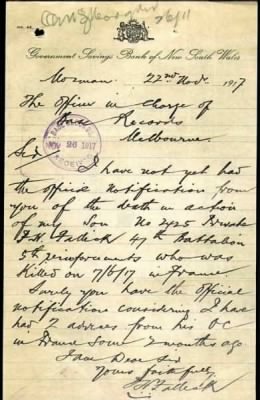 26/11
Government Savings Bank of New South Wales
Mosman, 22nd Novr. 1917
The Officer in Charge of
Base Records
Melbourne.
NOV 26 1917
Sir
I have not yet had
the official notification from
you of the death in action
of my Son No 2425 Private
F. H. Fallick 47th Battalion
5th reinforcements who was
Killed on 7/6/17 in France.
Surely you have the official
notification considering I have
had 2 advices from his OC
in France some 2 months ago
I am Dear Sir
Yours faithfully
Fallick